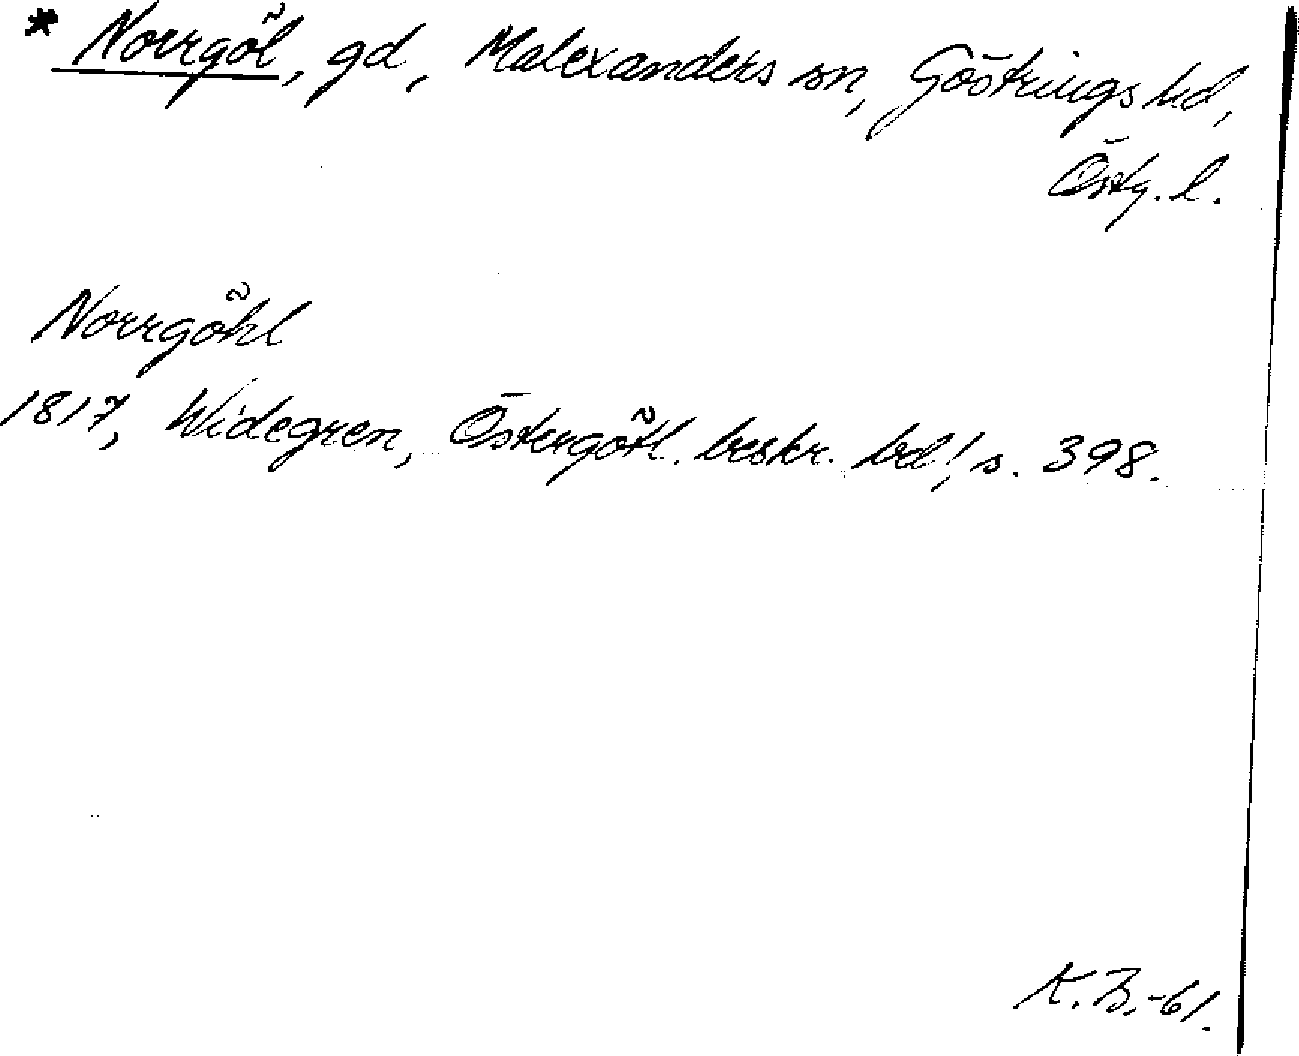 * Norrgöl, gd, Malexanders sn, Göstrings hd,
Östg. l.
Norrgöhl
1817, Widegren, Östergötl. beskr. bd 1, s. 398.
K. B. -61.